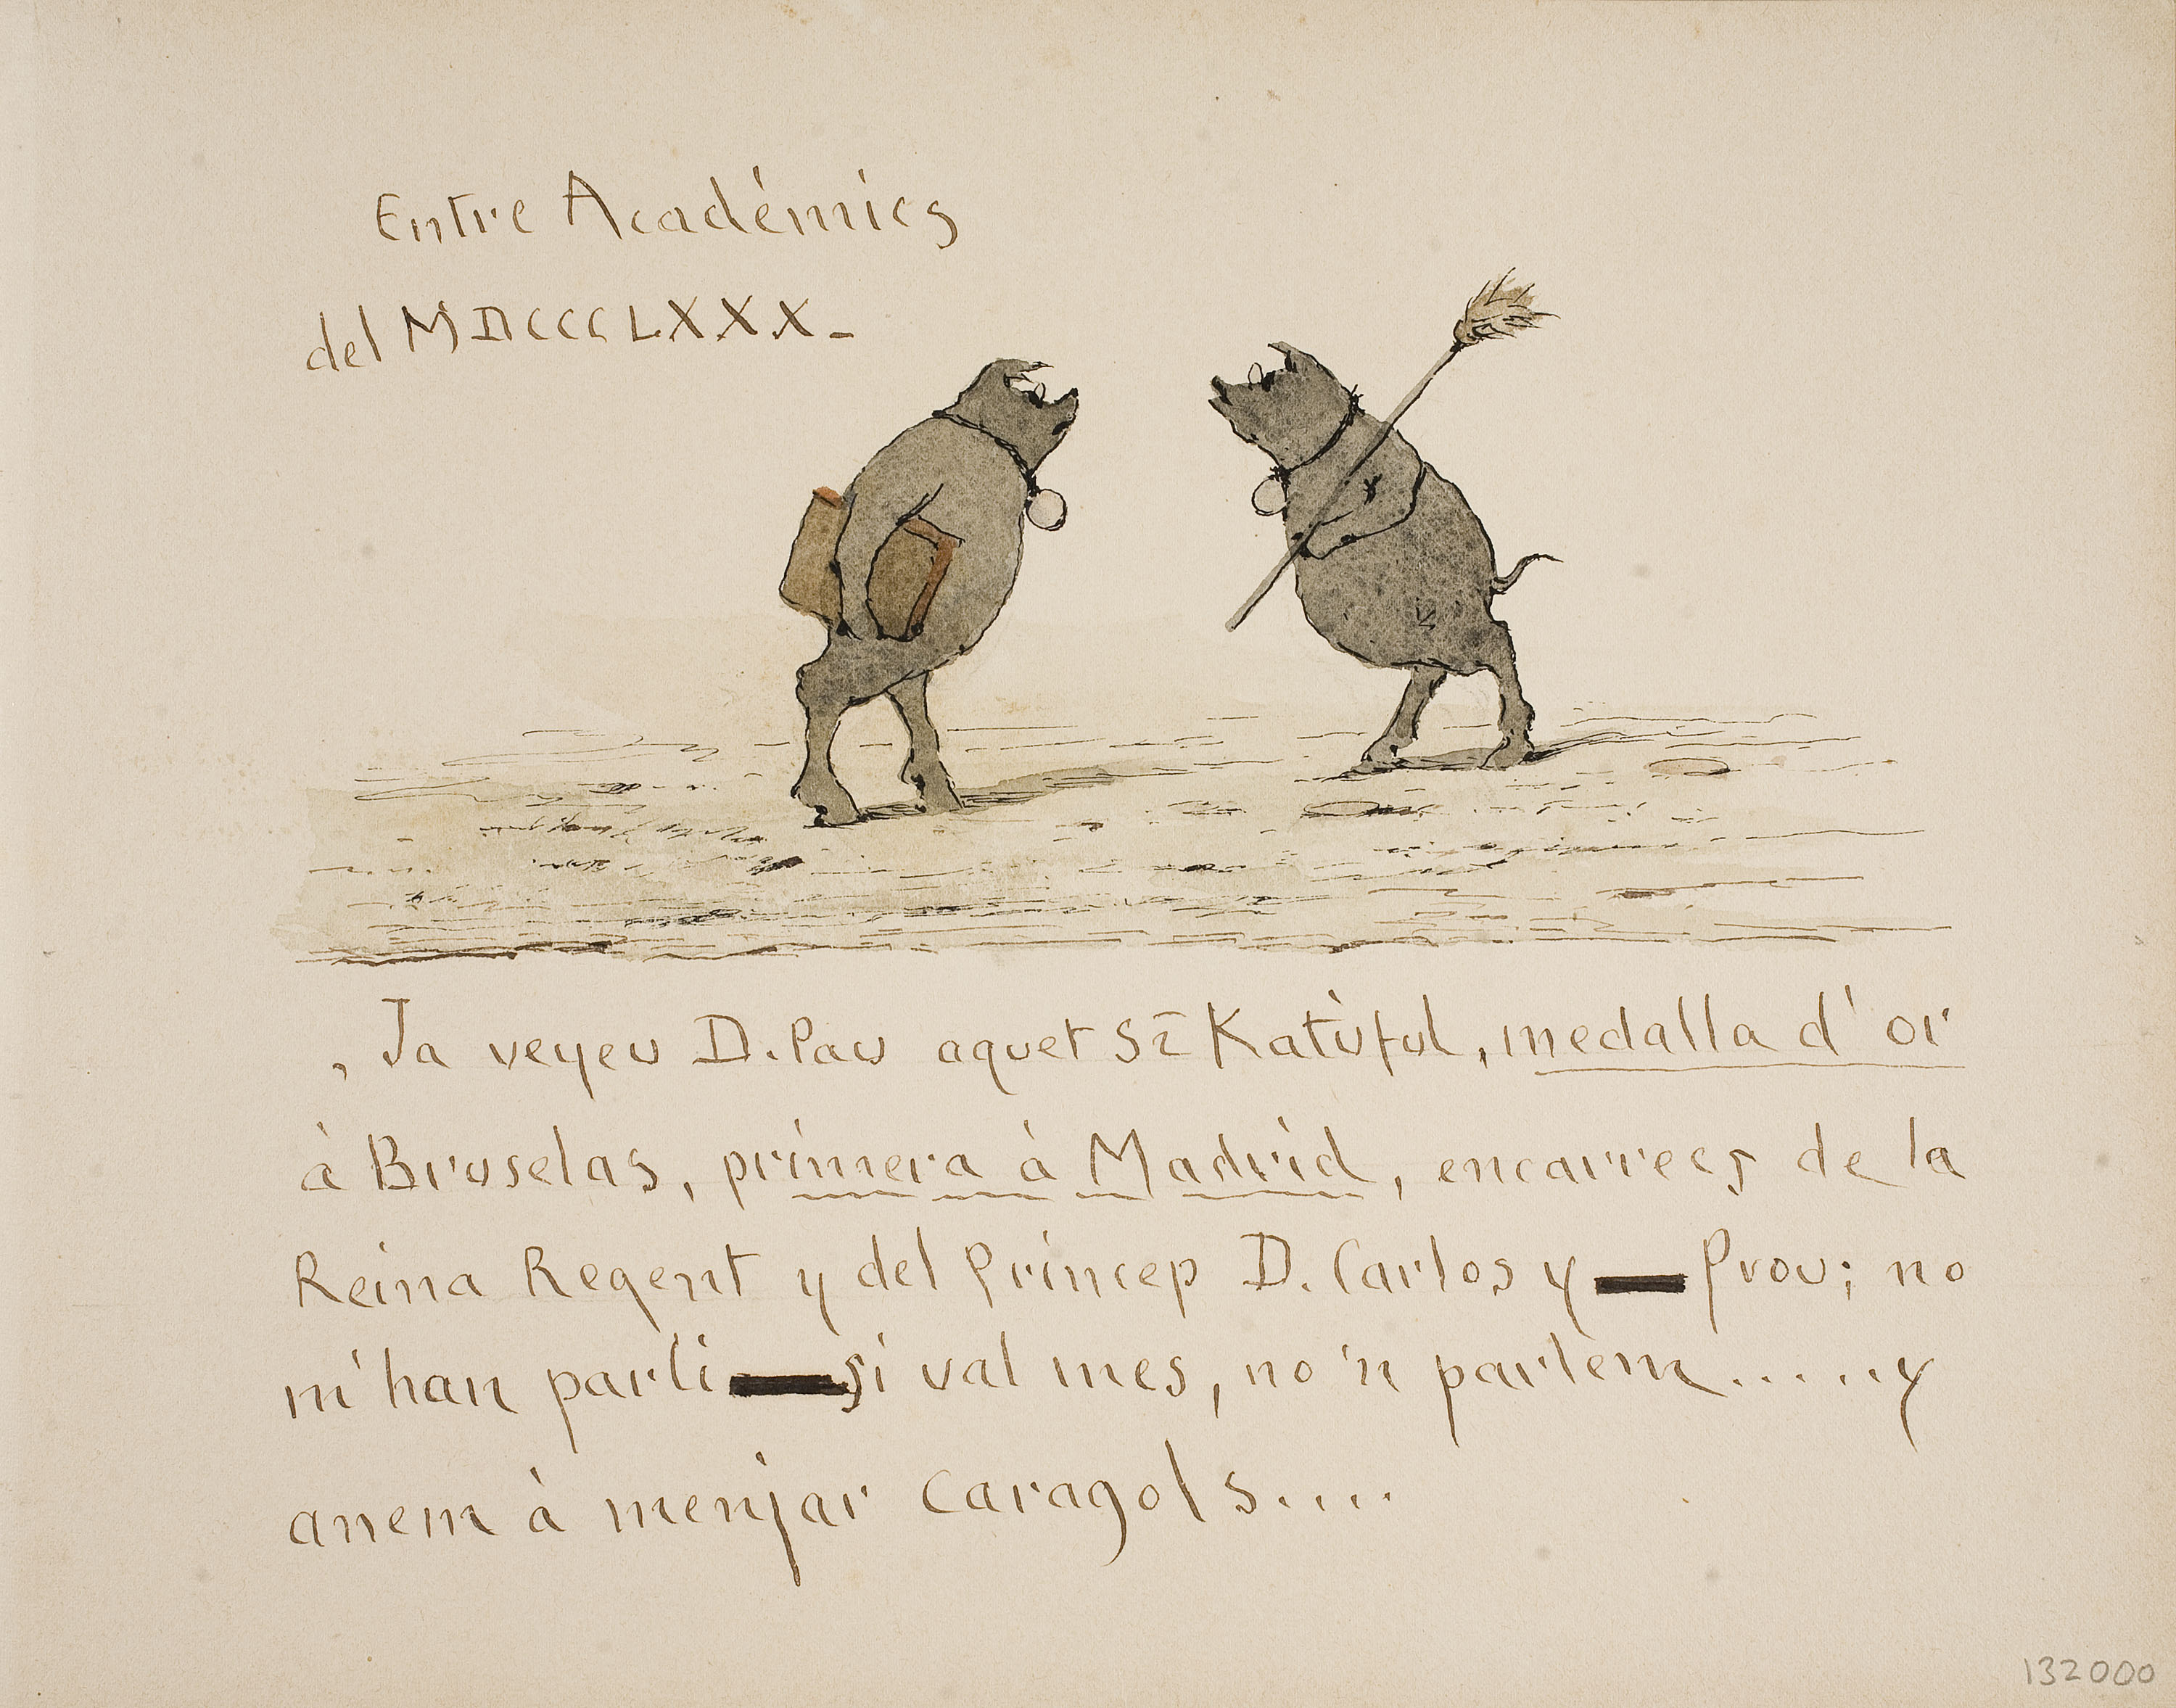 Entre Académics
del MDCCCLXXX-
, Ja veyeu D. Pau aquet Sr Katúful, medalla d'or
à Bruselas, primera à Madrid, encarrecs de la
Reina Regent y del Princep D. Carlos y Prou; no
m'han parli si val mes, no'n parlem......y
anem à menjar caragols....
132000